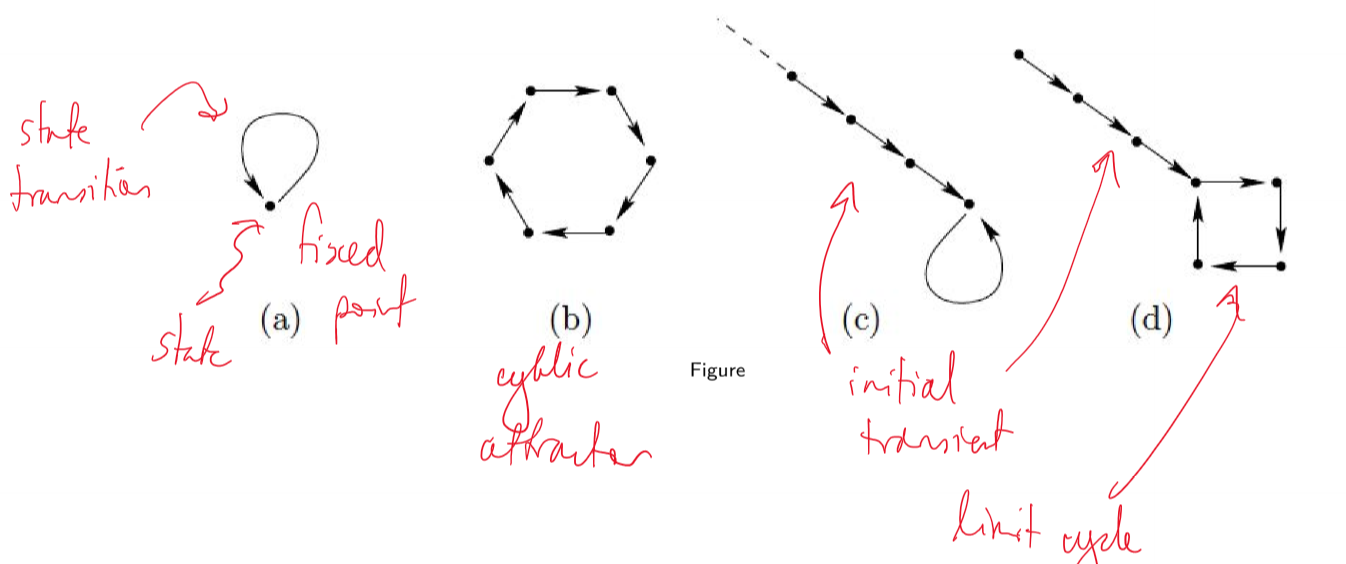 state
transition
fixed
point
state
(a)
(b)
(c)
(d)
cyclic
attractor
Figure
initial
transient
limit cycle